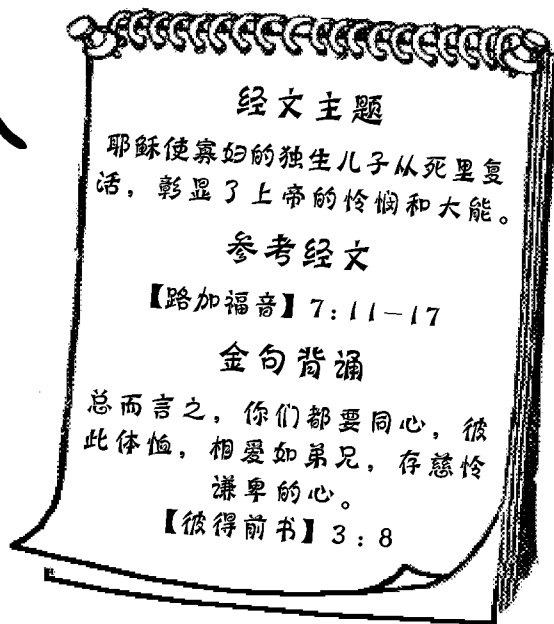 经文主题
耶稣使寡妇的独生儿子从死里复
活，彰显了上帝的怜悯和大能。
参考经文
【路加福音】7：11－17
金句背诵
总而言之，你们都要同心，彼
此体恤，相爱如弟兄，存慈怜
谦卑的心。
【彼得前书】3：8